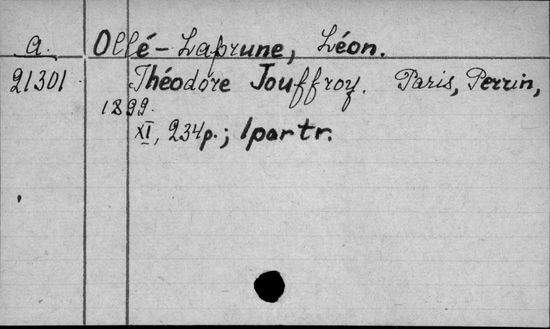 a. Ollé-Laprune, Léon.
21301 Théodore Jouffroy. Paris, Perrin,
1899.
XI, 234p.; 1portr.